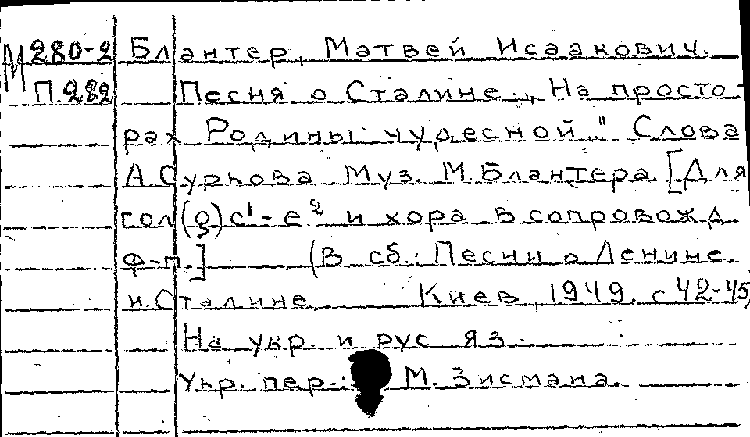 М 280-2 Блантер, Матвей Исаакович.
П.282 Песня о Сталине „На просто-
рах Родины чудесной" Слова
А.Суркова Муз. М.Блантера [Для
сол(о) с¹-е² и хора в сопровожд.
ф-п.] (В сб.: Песни о Ленине
и Сталине Киев, 1949. с 42-45)
На укр. и рус яз.
Укр. пер.: М. Зисмана.